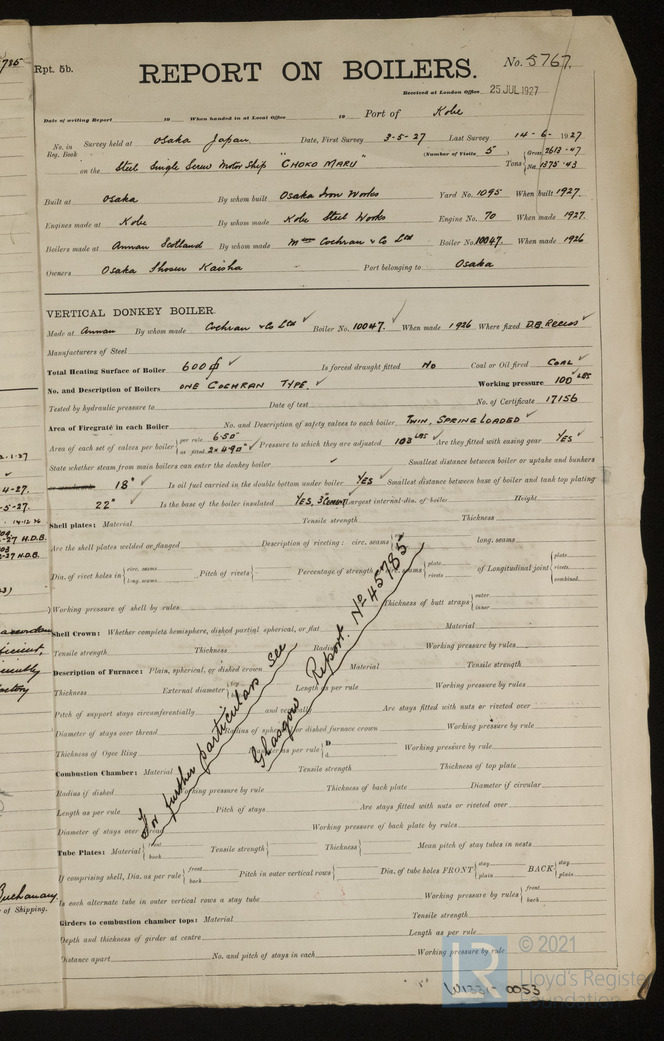 Rpt. 5b.
REPORT ON BOILERS.
No. 5767.
Received at London Office 25 JUL 1927
Date of writing Report 19 When handed in at Local Office 19 Port of Kobe
No. in Reg. Book Survey held at Osaka Japan. Date, First Survey 3-5-27 Last Survey 14-6-1927
(Number of Visits 5)
on the Steel Single Screw Motor Ship "CHOKO MARU" Tons { Gross 2613.47 Net 1375.43
Built at Osaka By whom built Osaka Iron Works Yard No. 1095 When built 1927.
Engines made at Kobe By whom made Kobe Steel Works Engine No. 70 When made 1927.
Boilers made at Annan Scotland By whom made Cochran & Co Ltd Boiler No. 10047. When made 1926
Owners Osaka Shosen Kaisha Port belonging to Osaka
VERTICAL DONKEY BOILER.
Made at Annan By whom made Cochran & Co Ltd Boiler No. 10047. When made 1926 Where fixed D.B. Recess
Manufacturers of Steel
Total Heating Surface of Boiler 600 Is forced draught fitted No Coal or Oil fired COAL
No. and Description of Boilers ONE COCHRAN TYPE Working pressure 100 LBS
Tested by hydraulic pressure to Date of test No. of Certificate 17156
Area of Firegrate in each Boiler No. and Description of safety valves to each boiler TWIN, SPRING LOADED
Area of each set of valves per boiler { per rule 6.50" as fitted 2 x 4.90" Pressure to which they are adjusted 103 LBS Are they fitted with easing gear YES
State whether steam from main boilers can enter the donkey boiler Smallest distance between boiler or uptake and bunkers
18" Is oil fuel carried in the double bottom under boiler YES Smallest distance between base of boiler and tank top plating
22" Is the base of the boiler insulated YES, 3" CEMENT Largest internal dia. of boiler Height
Shell plates: Material Tensile strength Thickness
Are the shell plates welded or flanged Description of riveting: circ. seams long. seams
Dia. of rivet holes in { circ. seams long. seams Pitch of rivets Percentage of strength circ. seams { plate rivets of Longitudinal joint { plate rivets combined
Working pressure of shell by rules Thickness of butt straps { outer inner
Shell Crown: Whether complete hemisphere, dished partial spherical, or flat Material
Tensile strength Thickness Radius Working pressure by rules
Description of Furnace: Plain, spherical, or dished crown Material Tensile strength
Thickness External diameter Length as per rule Working pressure by rules
Pitch of support stays circumferentially and vertically Are stays fitted with nuts or riveted over
Diameter of stays over thread Radius of spherical or dished furnace crown Working pressure by rule
Thickness of Ogee Ring as per rule { D d Working pressure by rule
Combustion Chamber: Material Tensile strength Thickness of top plate
Radius if dished Working pressure by rule Thickness of back plate Diameter if circular
Length as per rule Pitch of stays Are stays fitted with nuts or riveted over
Diameter of stays over thread Working pressure of back plate by rules
Tube Plates: Material { front back Tensile strength Thickness Mean pitch of stay tubes in nests
If comprising shell, Dia. as per rule { front back Pitch in outer vertical rows Dia. of tube holes FRONT { stay plain BACK { stay plain
Is each alternate tube in outer vertical rows a stay tube Working pressure by rules { front back
Girders to combustion chamber tops: Material Tensile strength
Depth and thickness of girder at centre Length as per rule
Distance apart No. and pitch of stays in each Working pressure by rule
For further particulars see
Glasgow Report. No 45785
LR © 2021
Lloyd's Register
Foundation
W1331-0053